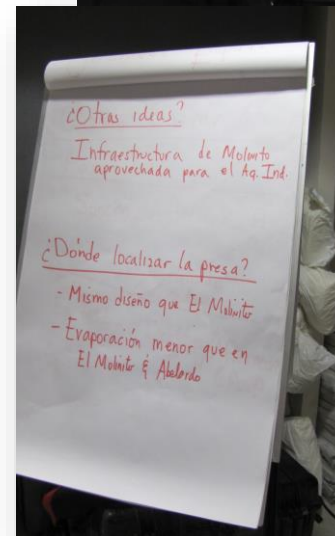 ¿Otras ideas?
Infraestructura de Molinito
aprovechada para el Ag. Ind.
¿Dónde localizar la presa?
- Mismo diseño que El Molinito
- Evaporación menor que en
El Molinito & Abelardo